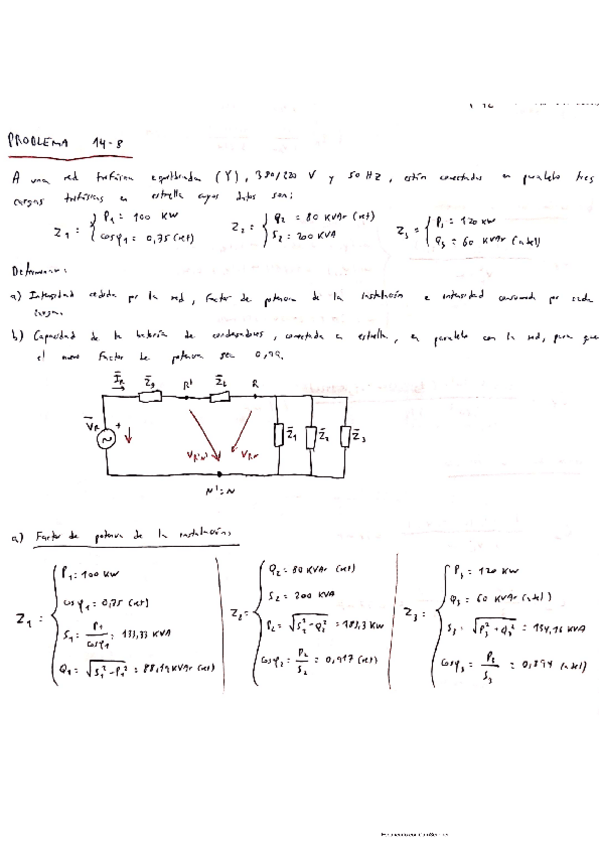 PROBLEMA 14-8
A una red trifásica equilibrada (Y), 380/220 V y 50 Hz, están conectadas en paralelo tres
cargas trifásicas en estrella cuyos datos son:
Z1: { P1: 100 KW
cosφ1 = 0,75 (ret)
Z2: { Q2 = 80 KVAr (ret)
S2 = 200 KVA
Z3: { P3: 120 KW
Q3 = 60 KVAr (adel)
Determinar:
a) Intensidad cedida por la red, factor de potencia de la instalación e intensidad consumida por cada
carga.
b) Capacidad de la batería de condensadores, conectada en estrella, en paralelo con la red, para que
el nuevo factor de potencia sea 0,99.
I̅R Z̅g R' Z̅L R
V̅R + VR'N' VRN Z̅1 Z̅2 Z̅3
N' = N
a) Factor de potencia de la instalación:
Z1: { P1: 100 KW
cosφ1 = 0,75 (ret)
S1 = P1/cosφ1 = 133,33 KVA
Q1 = √S1²-P1² = 88,19 KVAr (ret)
Z2 = { Q2 = 80 KVAr (ret)
S2 = 200 KVA
P2 = √S2²-Q2² = 183,3 KW
cosφ2 = P2/S2 = 0,917 (ret)
Z3: { P3 = 120 KW
Q3 = 60 KVAr (adel)
S3 = √P3²+Q3² = 134,16 KVA
cosφ3 = P3/S3 = 0,894 (adel)